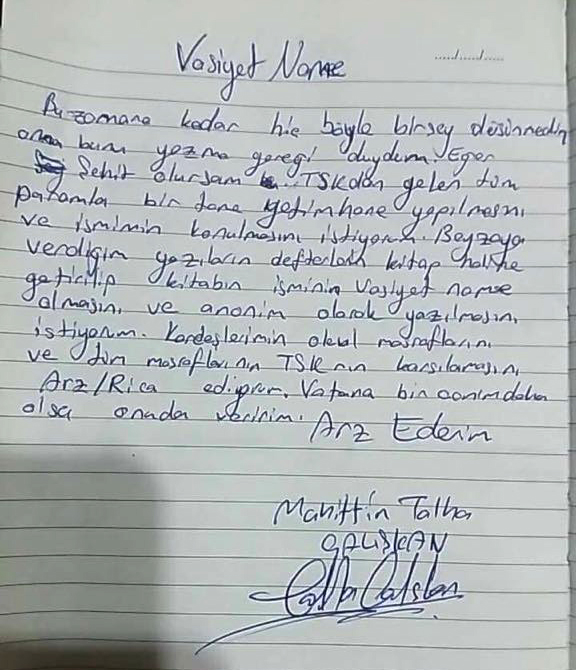 Vasiyet Name
...../...../.....
Bu zamana kadar hiç böyle birşey düşünmedim
ama bunu yazma gereği duydum. Eğer
Şehit olursam TSKdan gelen tüm
paramla bir tane yetimhane yapılmasını
ve ismimin konulmasını istiyorum. Beyzaya
verdiğim yazıların defterlerin kitap haline
getirilip kitabın isminin Vasiyet name
olmasını ve anonim olarak yazılmasını
istiyorum. Kardeşlerimin okul masraflarını
ve tüm masraflarının TSK nın karşılamasını
Arz/Rica ediyorum. Vatana bin canım daha
olsa onuda veririm. Arz Ederim
Mahittin Talha
ÇALIŞKAN